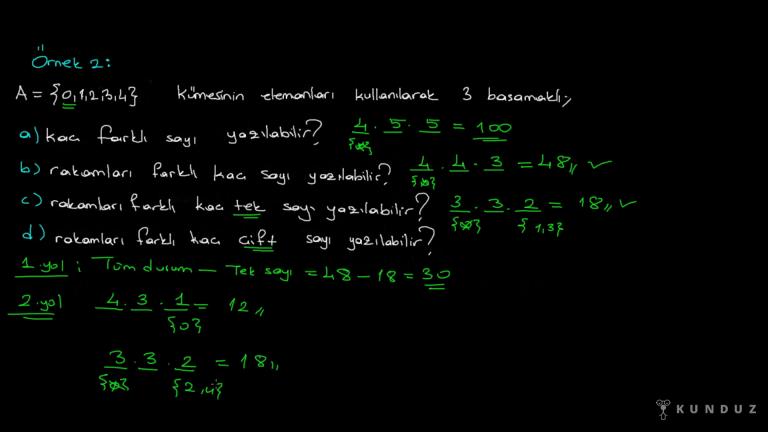 Örnek 2:
A = {0,1,2,3,4} kümesinin elemanları kullanılarak 3 basamaklı;
a) kaç farklı sayı yazılabilir? 4 . 5 . 5 = 100
{0}
b) rakamları farklı kaç sayı yazılabilir? 4 . 4 . 3 = 48,, ✓
{0}
c) rakamları farklı kaç tek sayı yazılabilir? 3 . 3 . 2 = 18,, ✓
{0} {1,3}
d) rakamları farklı kaç çift sayı yazılabilir?
1.yol : Tüm durum — Tek sayı = 48 - 18 = 30
2.yol 4 . 3 . 1 = 12,,
{0}
3 . 3 . 2 = 18,,
{0} {2,4}
KUNDUZ